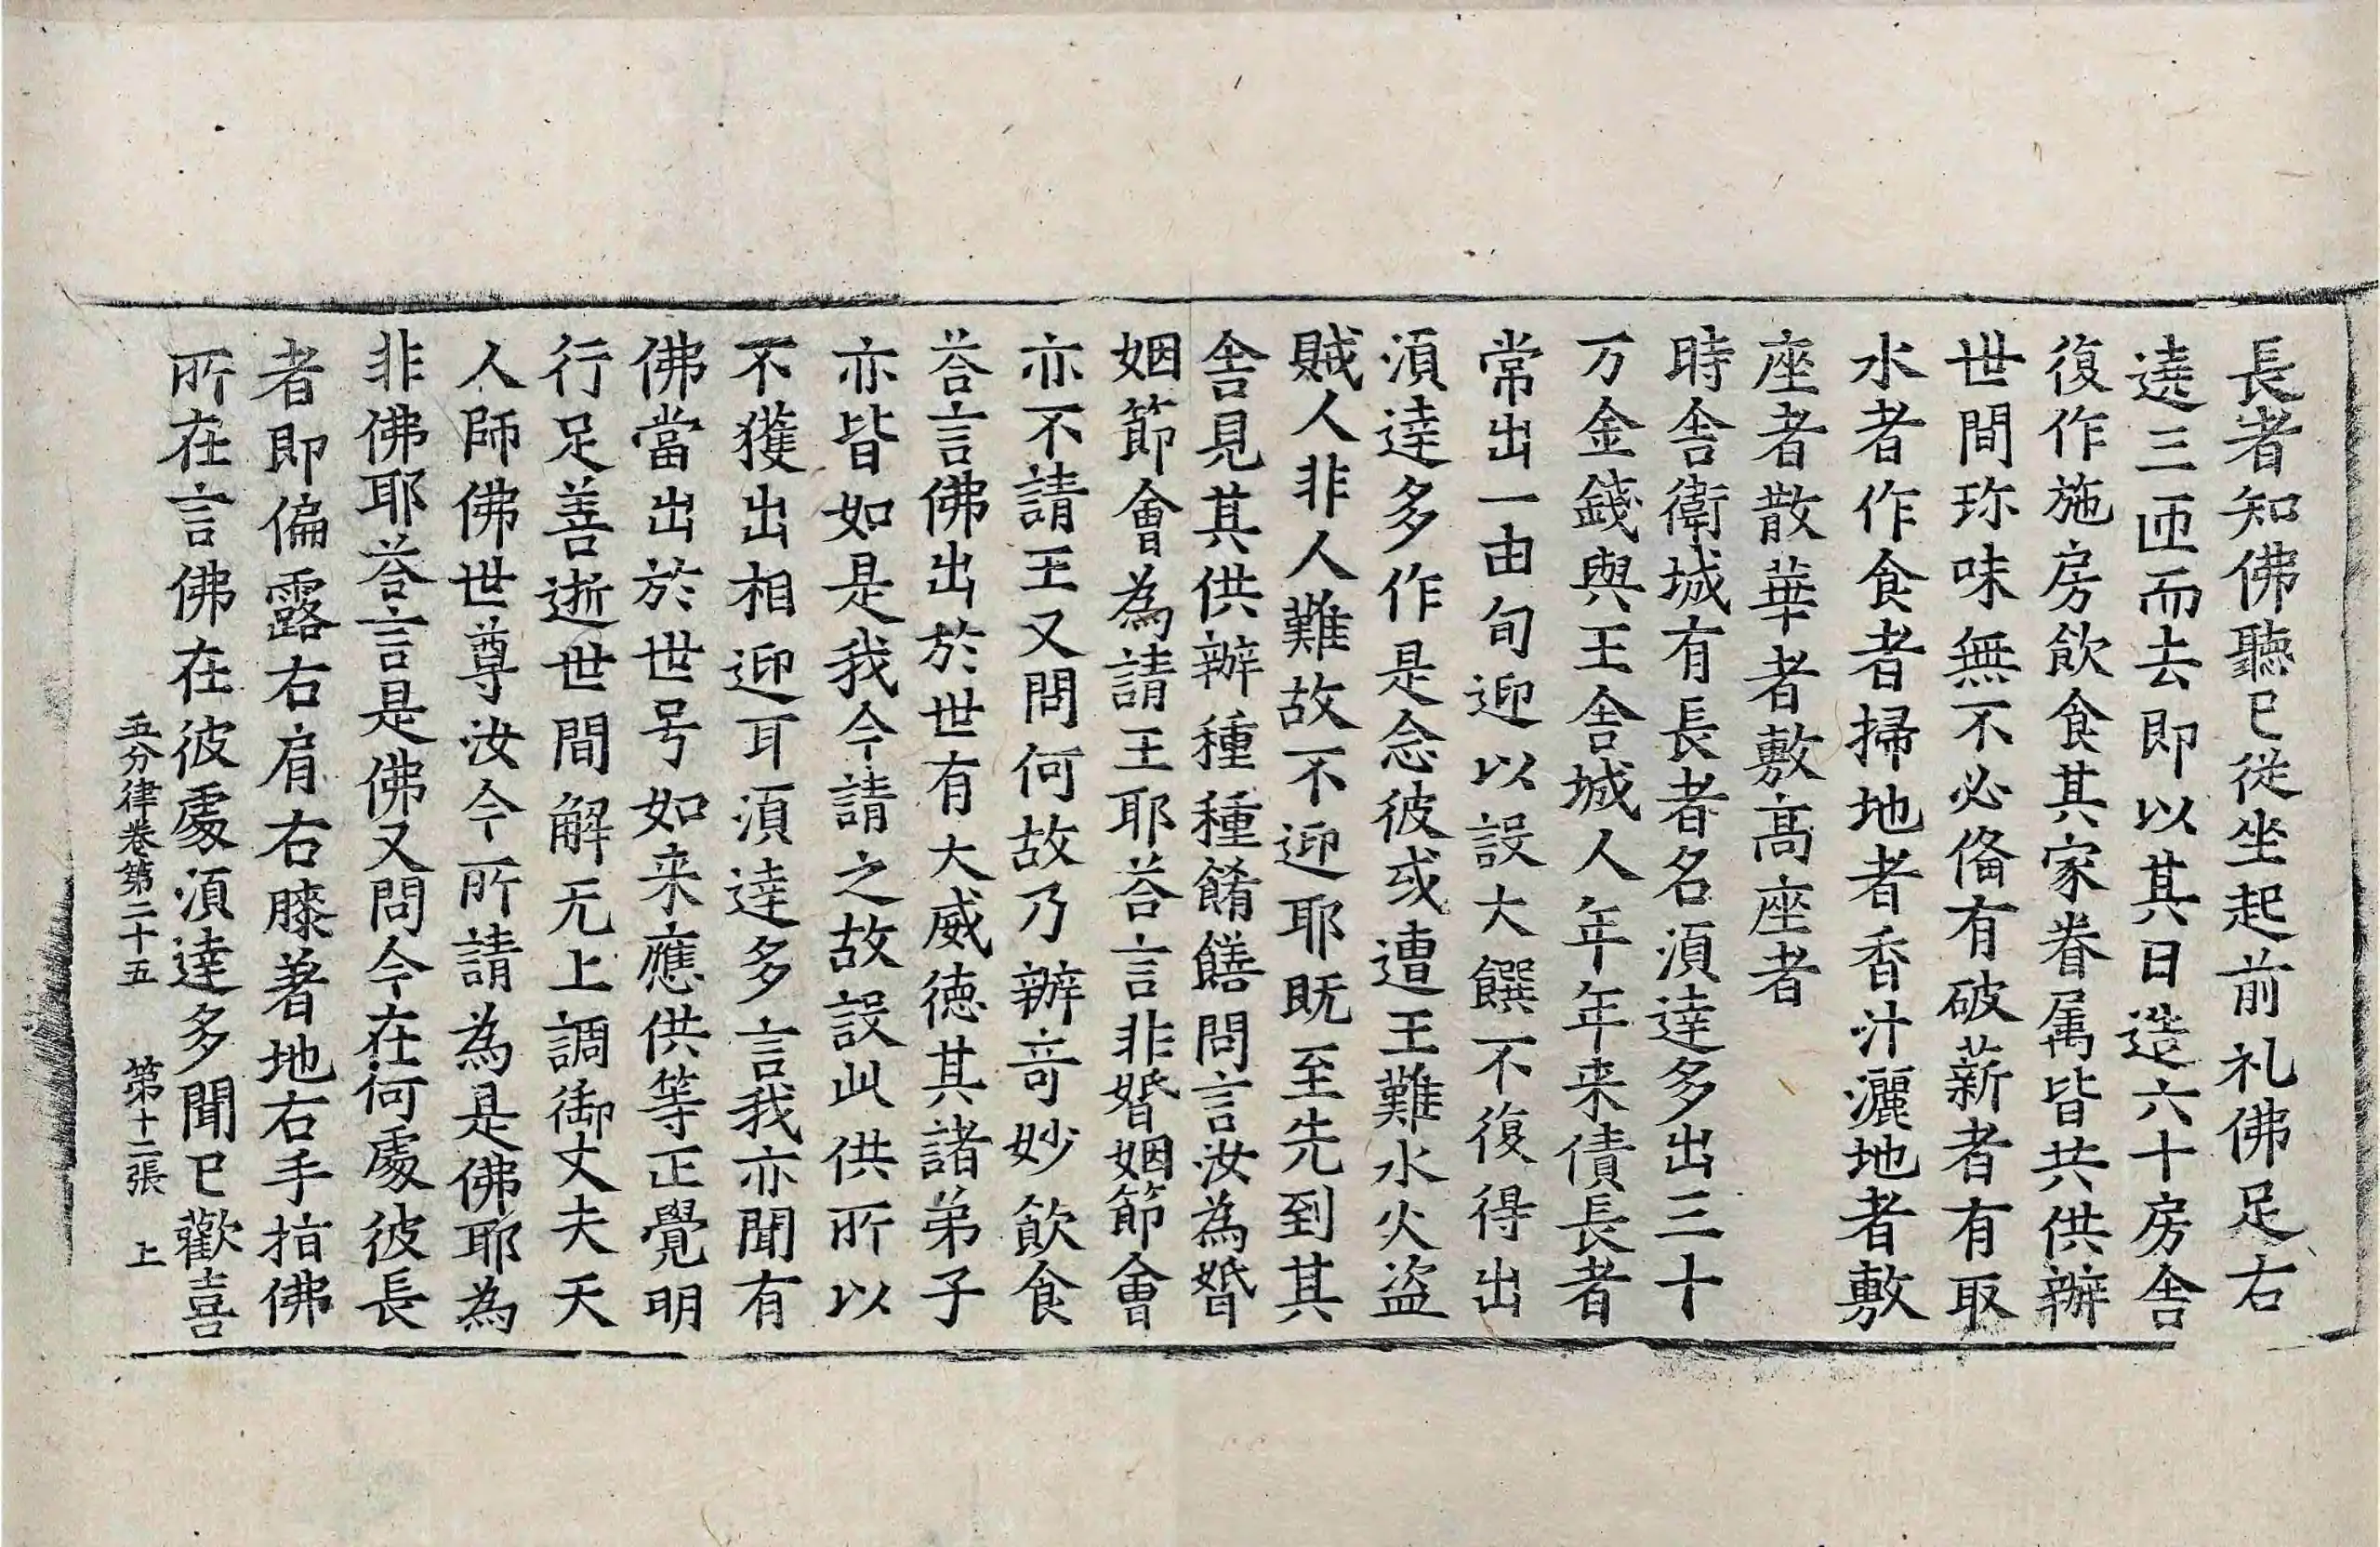 長者知佛聽已從坐起前礼佛足右
遶三匝而去即以其日造六十房舍
復作施房飲食其家眷属皆共供辦
世間珎味無不必俻有破薪者有取
水者作食者掃地者香汁灑地者敷
座者散華者敷髙座者
時舍衛城有長者名湏達多出三十
万金錢與王舍城人年年来債長者
常出一由旬迎以設大饌不復得出
湏達多作是念彼或遭王難水火盜
賊人非人難故不迎耶既至先到其
舍見其供辦種種餚饍問言汝為婚
姻節會為請王耶荅言非婚姻節會
亦不請王又問何故乃辦竒妙飲食
荅言佛出於世有大威德其諸弟子
亦皆如是我今請之故設此供所以
不獲出相迎耳湏達多言我亦聞有
佛當出於世号如来應供等正覺明
行足善逝世間解无上調御丈夫天
人師佛世尊汝今所請為是佛耶為
非佛耶荅言是佛又問今在何處彼長
者即偏露右肩右膝著地右手指佛
所在言佛在彼處湏達多聞已歡喜
五分律卷第二十五 第十二張 上